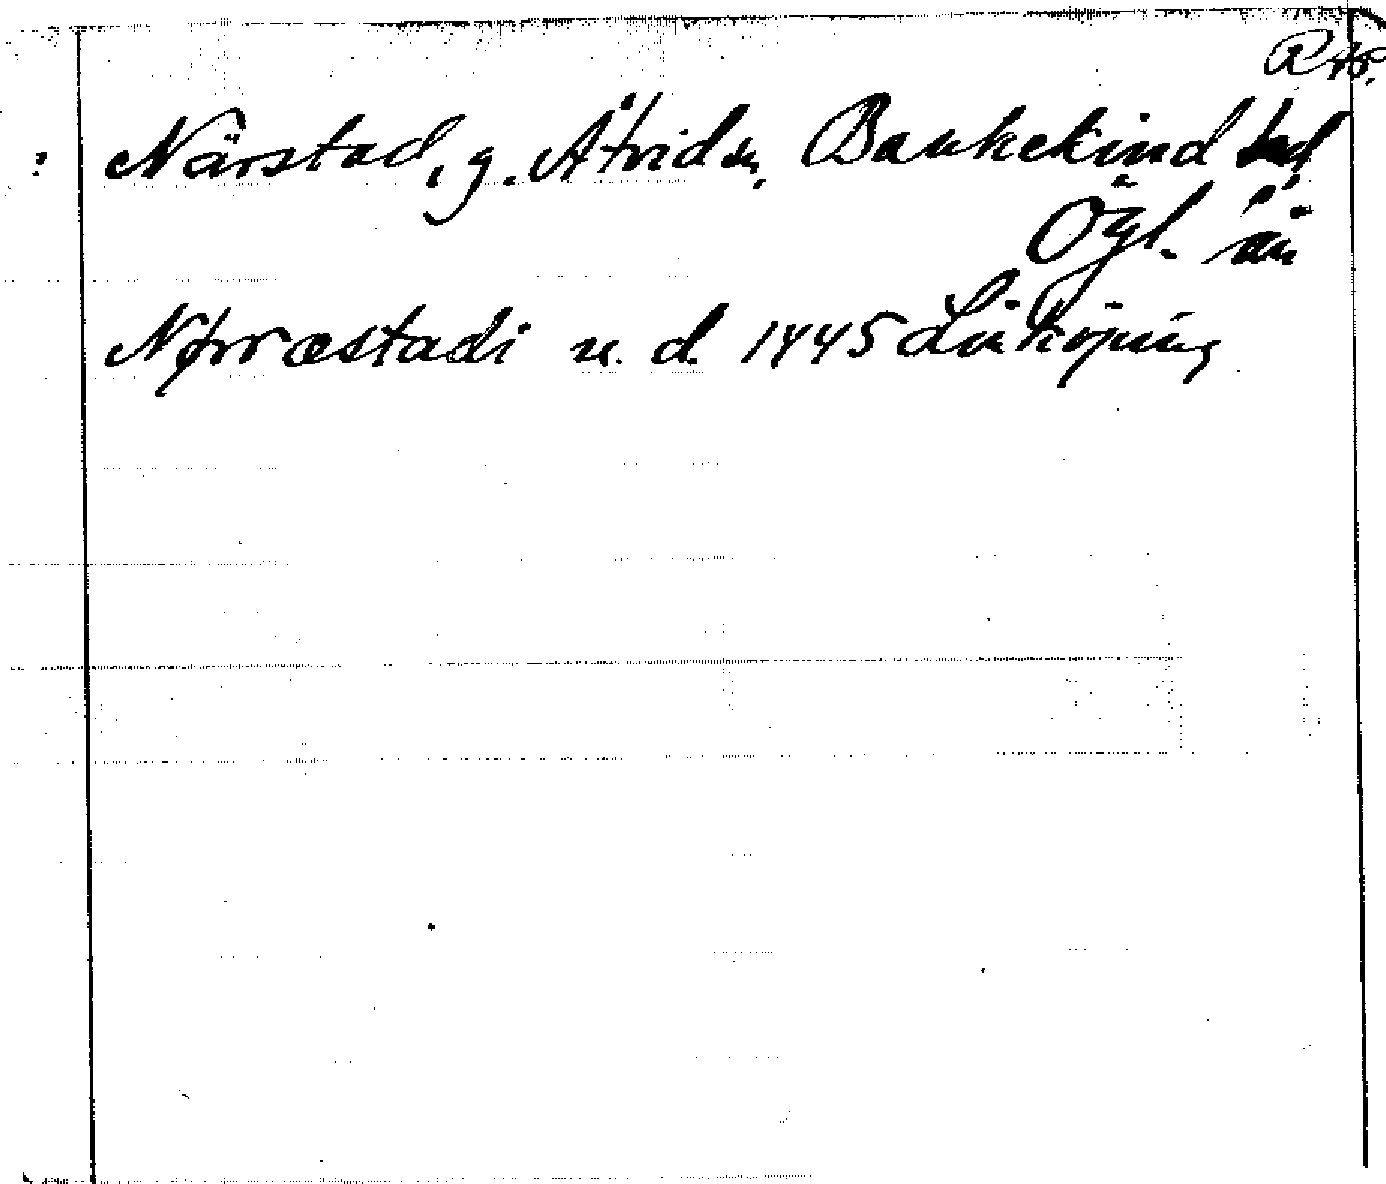 : Närstad, g. Åtvid sn, Bankekind hd
Ögl. län
Nørræstadi u. d. 1445 Linköping